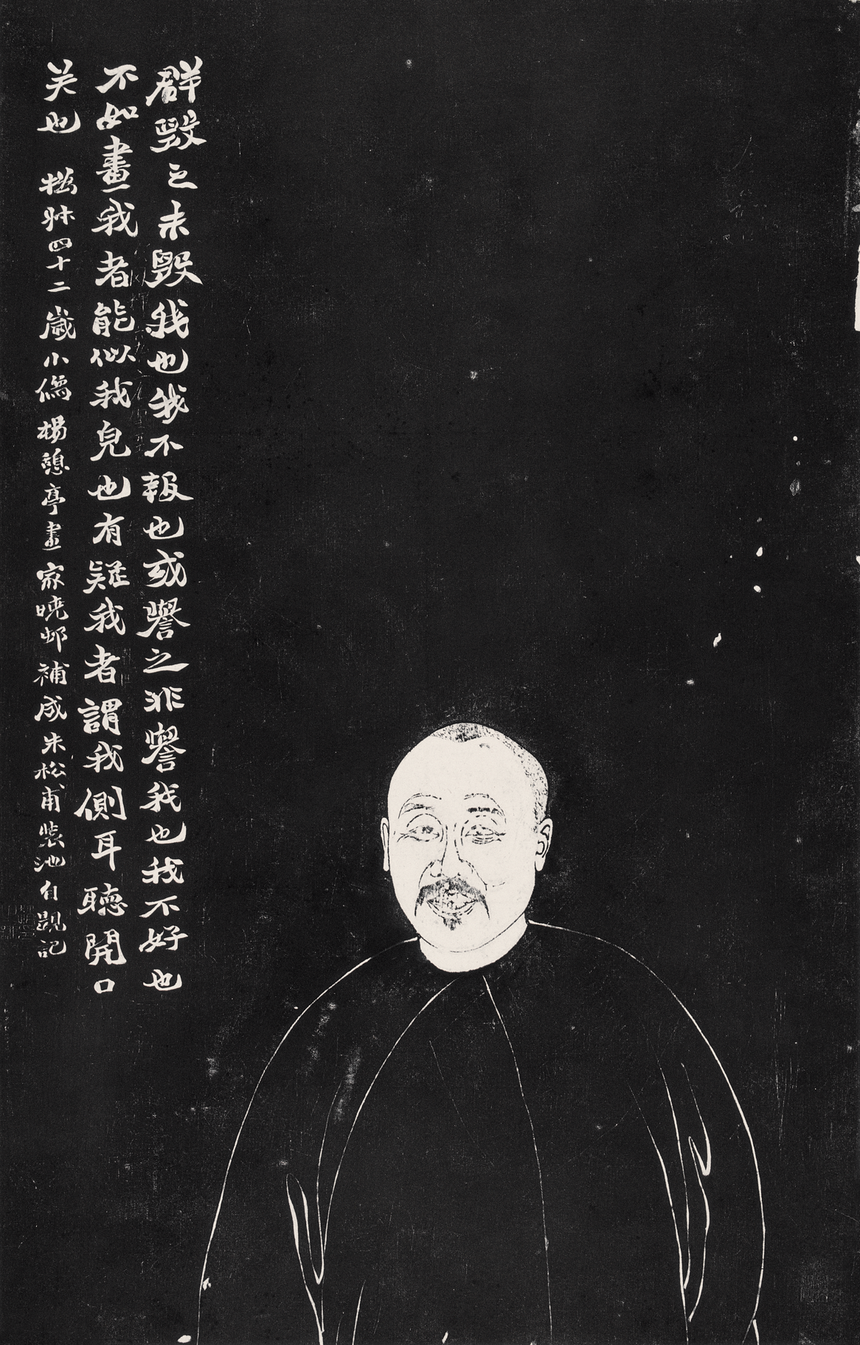 群毀之未毀我也我不報也或譽之非譽我也我不好也
不如畫我者能似我皃也有疑我者謂我側耳聽開口
笑也 㧑叔四十二歲小像楊憩亭畫家曉邨補成朱松甫裝池自題記